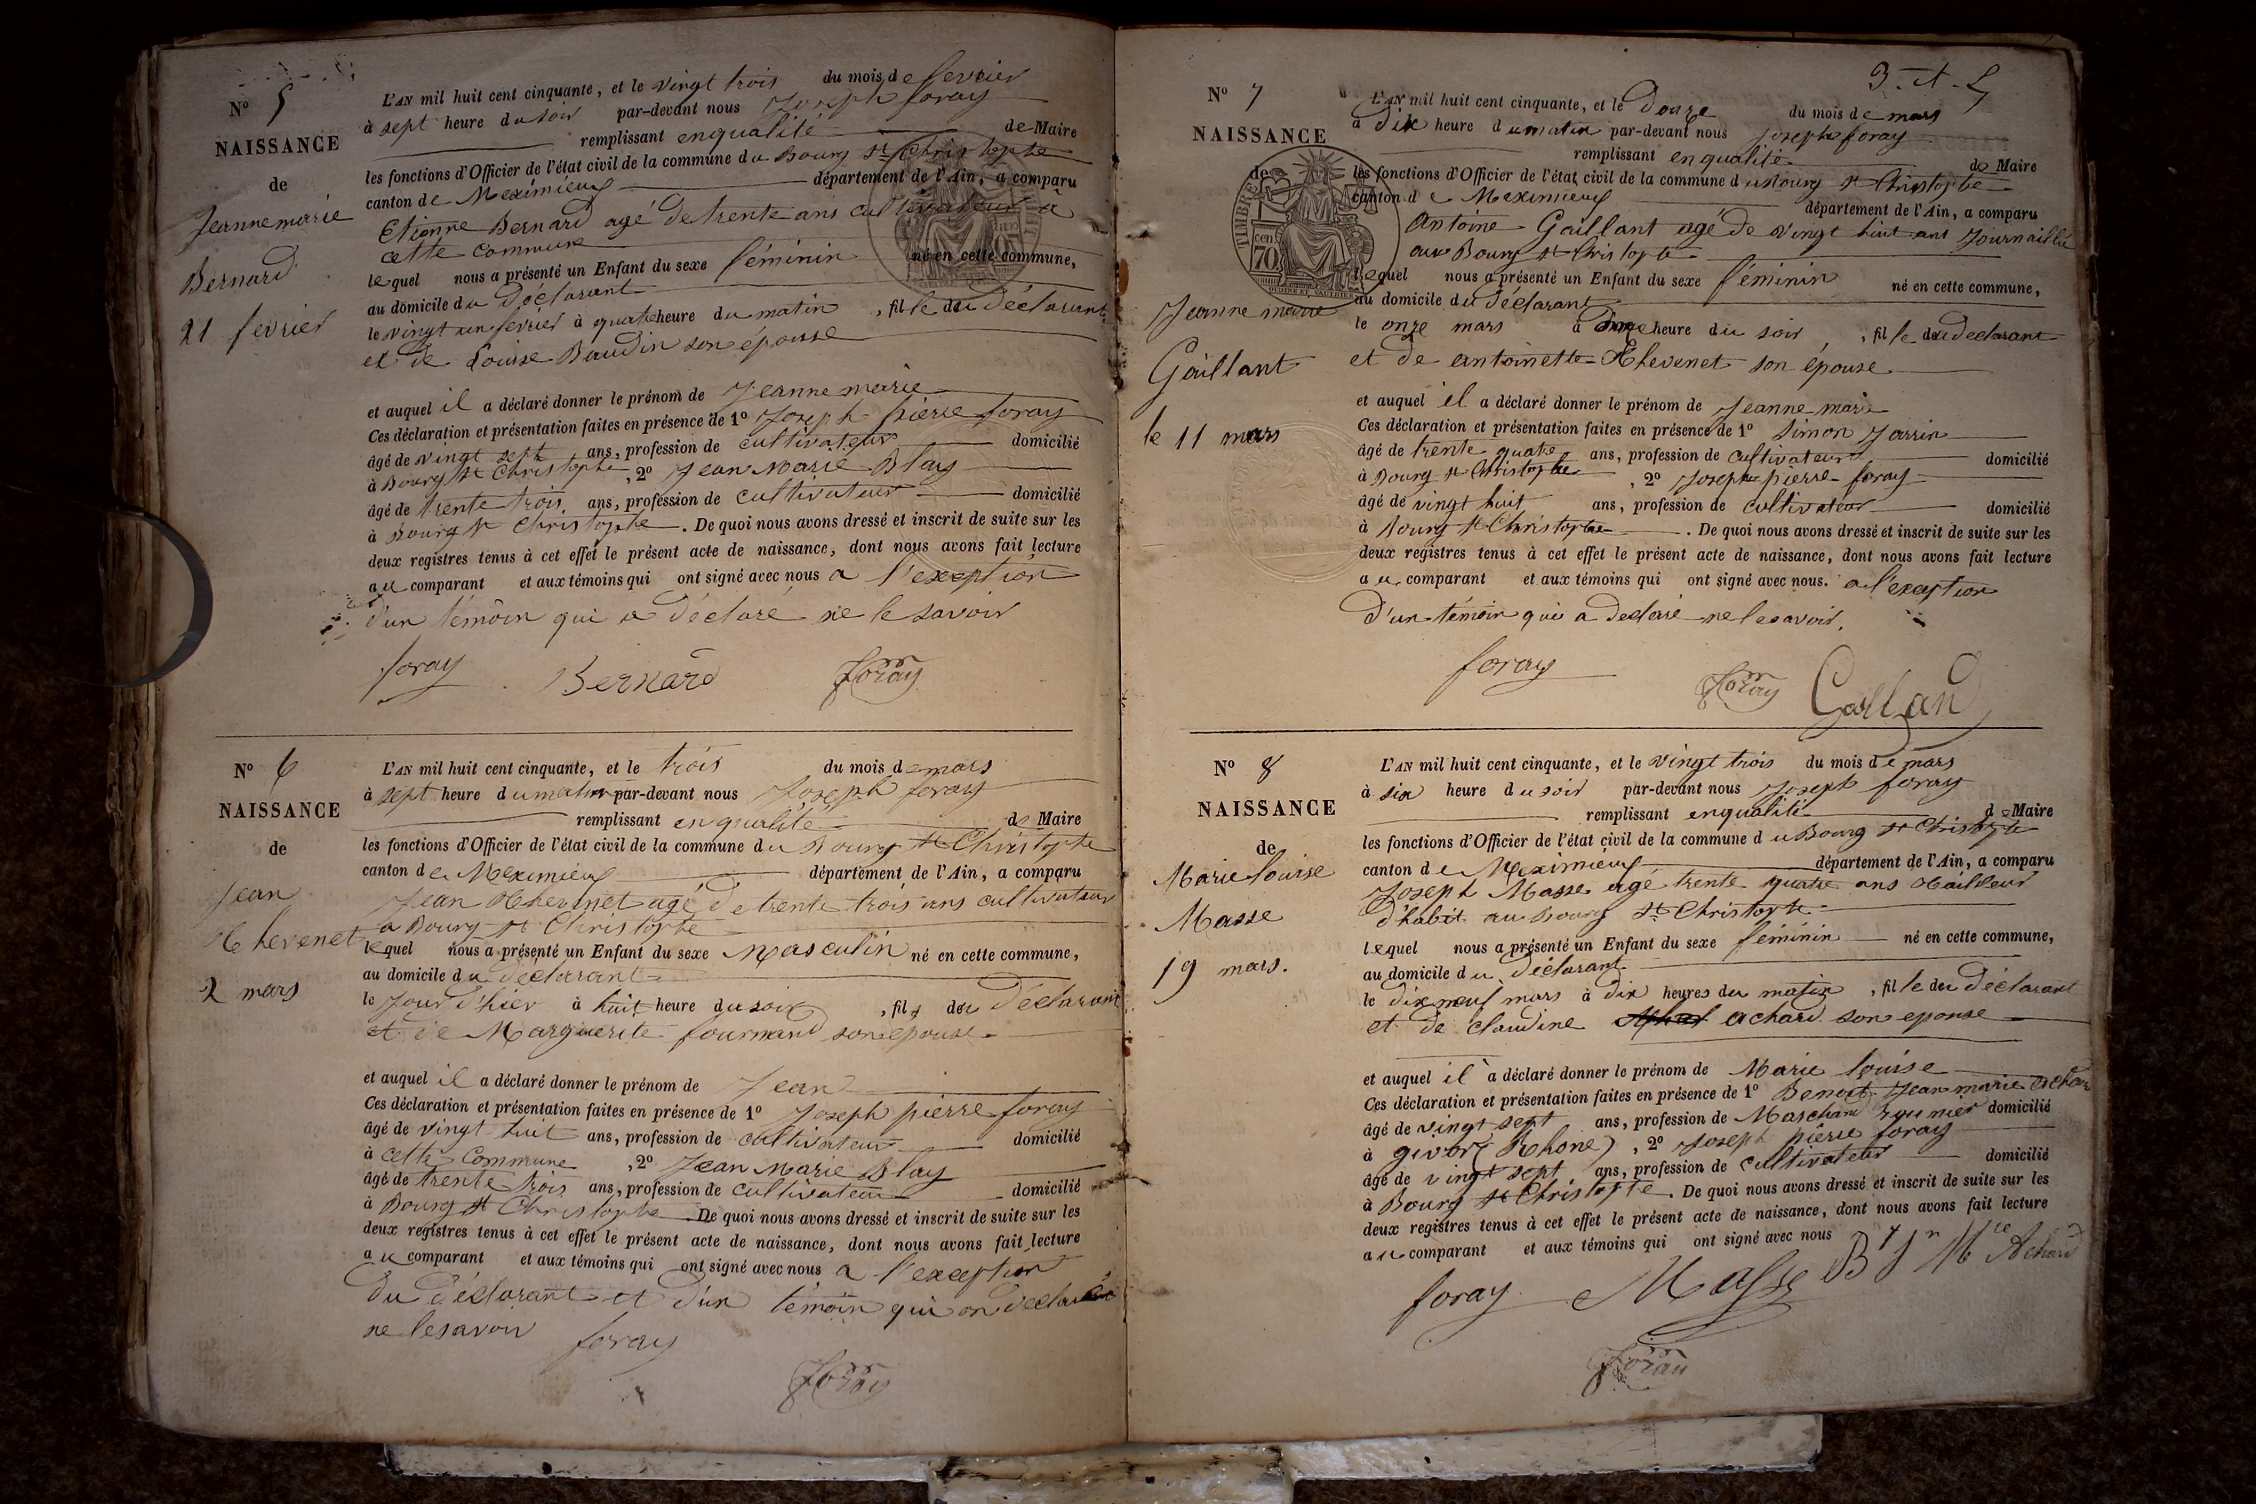 N° 5
NAISSANCE
de
Jeanne marie
Bernard
21 fevrier
L'AN mil huit cent cinquante, et le vingt trois du mois de fevrier
à sept heure du soir par-devant nous Joseph foray
remplissant enqualité de Maire
les fonctions d'Officier de l'état civil de la commune du Bourg St Christophe
canton de Meximieux département de l'Ain, a comparu
Etienne Bernard agé de trente ans cultivateur à
cette commune
lequel nous a présenté un Enfant du sexe féminin né en cette commune,
au domicile du déclarant
le vingt un fevrier à quatre heure du matin, fille du déclarant
et de Louise Baudin son épouse
et auquel il a déclaré donner le prénom de Jeanne marie
Ces déclaration et présentation faites en présence de 1° Joseph pierre foray
âgé de vingt sept ans, profession de cultivateur domicilié
à Bourg St Christophe, 2° Jean Marie Blay
âgé de trente trois ans, profession de cultivateur domicilié
à Bourg St Christophe. De quoi nous avons dressé et inscrit de suite sur les
deux registres tenus à cet effet le présent acte de naissance, dont nous avons fait lecture
au comparant et aux témoins qui ont signé avec nous a l'exception
d'un témoin qui a déclaré ne le savoir
foray Bernard foray
N° 6
NAISSANCE
de
Jean
Thevenet
2 mars
L'AN mil huit cent cinquante, et le trois du mois de mars
à sept heure du matin par-devant nous Joseph foray
remplissant en qualité de Maire
les fonctions d'Officier de l'état civil de la commune du Bourg St Christophe
canton de Meximieux département de l'Ain, a comparu
Jean Thevenet agé de trente trois ans cultivateur
a Bourg St Christophe
lequel nous a présenté un Enfant du sexe Masculin né en cette commune,
au domicile du déclarant
le Jour d'hier à huit heure du soir, fils du déclarant
et de Marguerite fourmand son epouse
et auquel il a déclaré donner le prénom de Jean
Ces déclaration et présentation faites en présence de 1° Joseph pierre foray
âgé de vingt huit ans, profession de cultivateur domicilié
à cette commune, 2° Jean Marie Blay
âgé de trente trois ans, profession de cultivateur domicilié
à Bourg St Christophe. De quoi nous avons dressé et inscrit de suite sur les
deux registres tenus à cet effet le présent acte de naissance, dont nous avons fait lecture
au comparant et aux témoins qui ont signé avec nous a l'exception
du déclarant et d'un témoin qui on déclaré
ne lesavoir foray
foray
3
N° 7
NAISSANCE
de
TIMBRE
70
Jeanne marie
Gaillant
le 11 mars
L'AN mil huit cent cinquante, et le Douze du mois de mars
a dix heure du matin par-devant nous Joseph foray
remplissant en qualité de Maire
les fonctions d'Officier de l'état civil de la commune du Bourg St Christophe
canton de Meximieux département de l'Ain, a comparu
Antoine Gaillant agé de vingt huit ans Journaillié
au Bourg St Christophe
lequel nous a présenté un Enfant du sexe féminin né en cette commune,
au domicile du déclarant
le onze mars à heure du soir, fille du declarant
et de antoinette Thevenet son épouse
et auquel il a déclaré donner le prénom de Jeanne marie
Ces déclaration et présentation faites en présence de 1° Simon Jarrin
âgé de trente quatre ans, profession de cultivateur domicilié
à Bourg St Christophe, 2° Joseph pierre foray
âgé de vingt huit ans, profession de cultivateur domicilié
à Bourg St Christophe. De quoi nous avons dressé et inscrit de suite sur les
deux registres tenus à cet effet le présent acte de naissance, dont nous avons fait lecture
au comparant et aux témoins qui ont signé avec nous. a l'exception
d'un témoin qui a declaré ne lesavoir.
foray foray Galland
N° 8
NAISSANCE
de
Marie louise
Masse
19 mars.
L'AN mil huit cent cinquante, et le vingt trois du mois de mars
à six heure du soir par-devant nous Joseph foray
remplissant enqualité de Maire
les fonctions d'Officier de l'état civil de la commune du Bourg St Christophe
canton de Meximieux département de l'Ain, a comparu
Joseph Masse agé trente quatre ans tailleur
d'habit au Bourg St Christophe
lequel nous a présenté un Enfant du sexe féminin né en cette commune,
au domicile du déclarant
le dix neuf mars à dix heures du matin, fille du déclarant
et de claudine achard son epouse
et auquel il a déclaré donner le prénom de Marie louise
Ces déclaration et présentation faites en présence de 1° Benoit Jean marie achar
âgé de vingt sept ans, profession de Marchand domicilié
à givor (Rhone), 2° Joseph pierre foray
âgé de vingt sept ans, profession de cultivateur domicilié
à Bourg St Christophe. De quoi nous avons dressé et inscrit de suite sur les
deux registres tenus à cet effet le présent acte de naissance, dont nous avons fait lecture
au comparant et aux témoins qui ont signé avec nous
foray Masse Bt Jn Mie Achard
foray